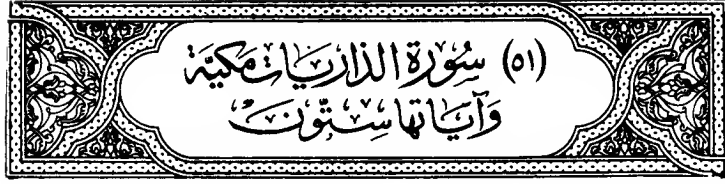 (٥١) سُورَة الذاريات مكيّة
وَآيَاتها سِتّونَ